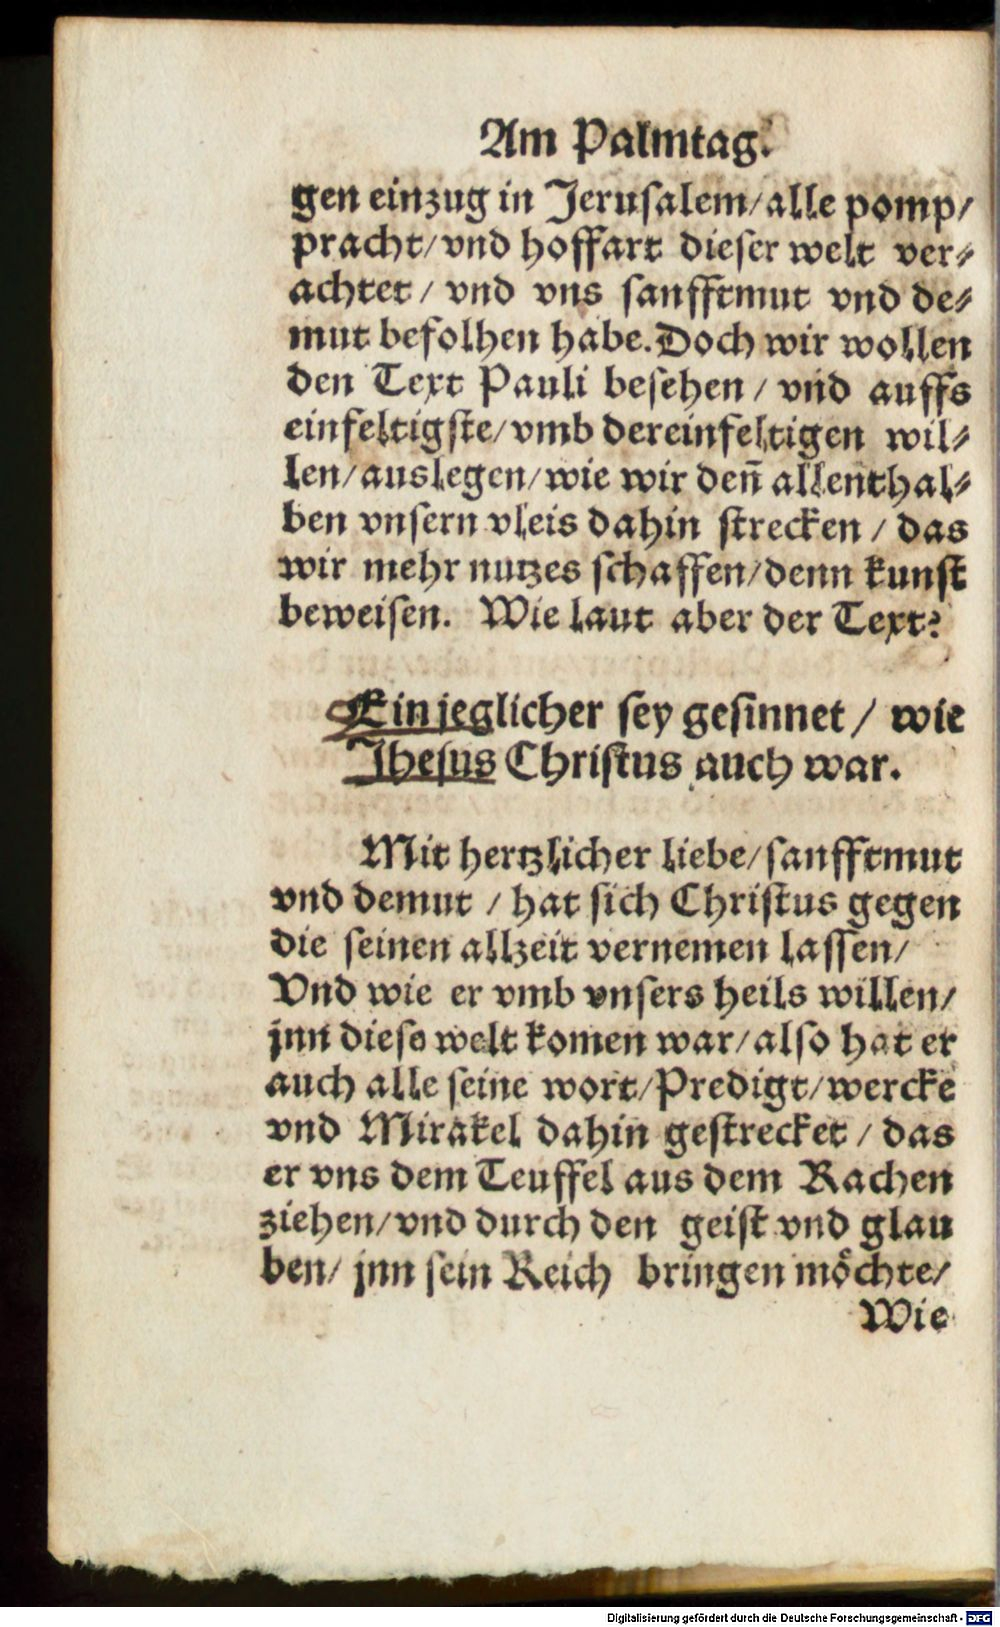 Am Palmtag.
gen einzug in Jerusalem/alle pomp/
pracht/vnd hoffart dieser welt ver⸗
achtet / vnd vns sanfftmut vnd de⸗
mut befolhen habe. Doch wir wollen
den Text Pauli besehen / vnd auffs
einfeltigste/vmb dereinfeltigen wil⸗
len/auslegen/wie wir den̄ allenthal⸗
ben vnsern vleis dahin strecken / das
wir mehr nutzes schaffen/denn kunst
beweisen. Wie laut aber der Text?
Ein jeglicher sey gesinnet / wie
Jhesus Christus auch war.
Mit hertzlicher liebe/sanfftmut
vnd demut / hat sich Christus gegen
die seinen allzeit vernemen lassen/
Vnd wie er vmb vnsers heils willen/
jnn diese welt komen war/also hat er
auch alle seine wort/Predigt/wercke
vnd Mirakel dahin gestrecket / das
er vns dem Teuffel aus dem Rachen
ziehen/vnd durch den geist vnd glau
ben/ jnn sein Reich bringen möchte/
Wie
Digitalisierung gefördert durch die Deutsche Forschungsgemeinschaft - DFG